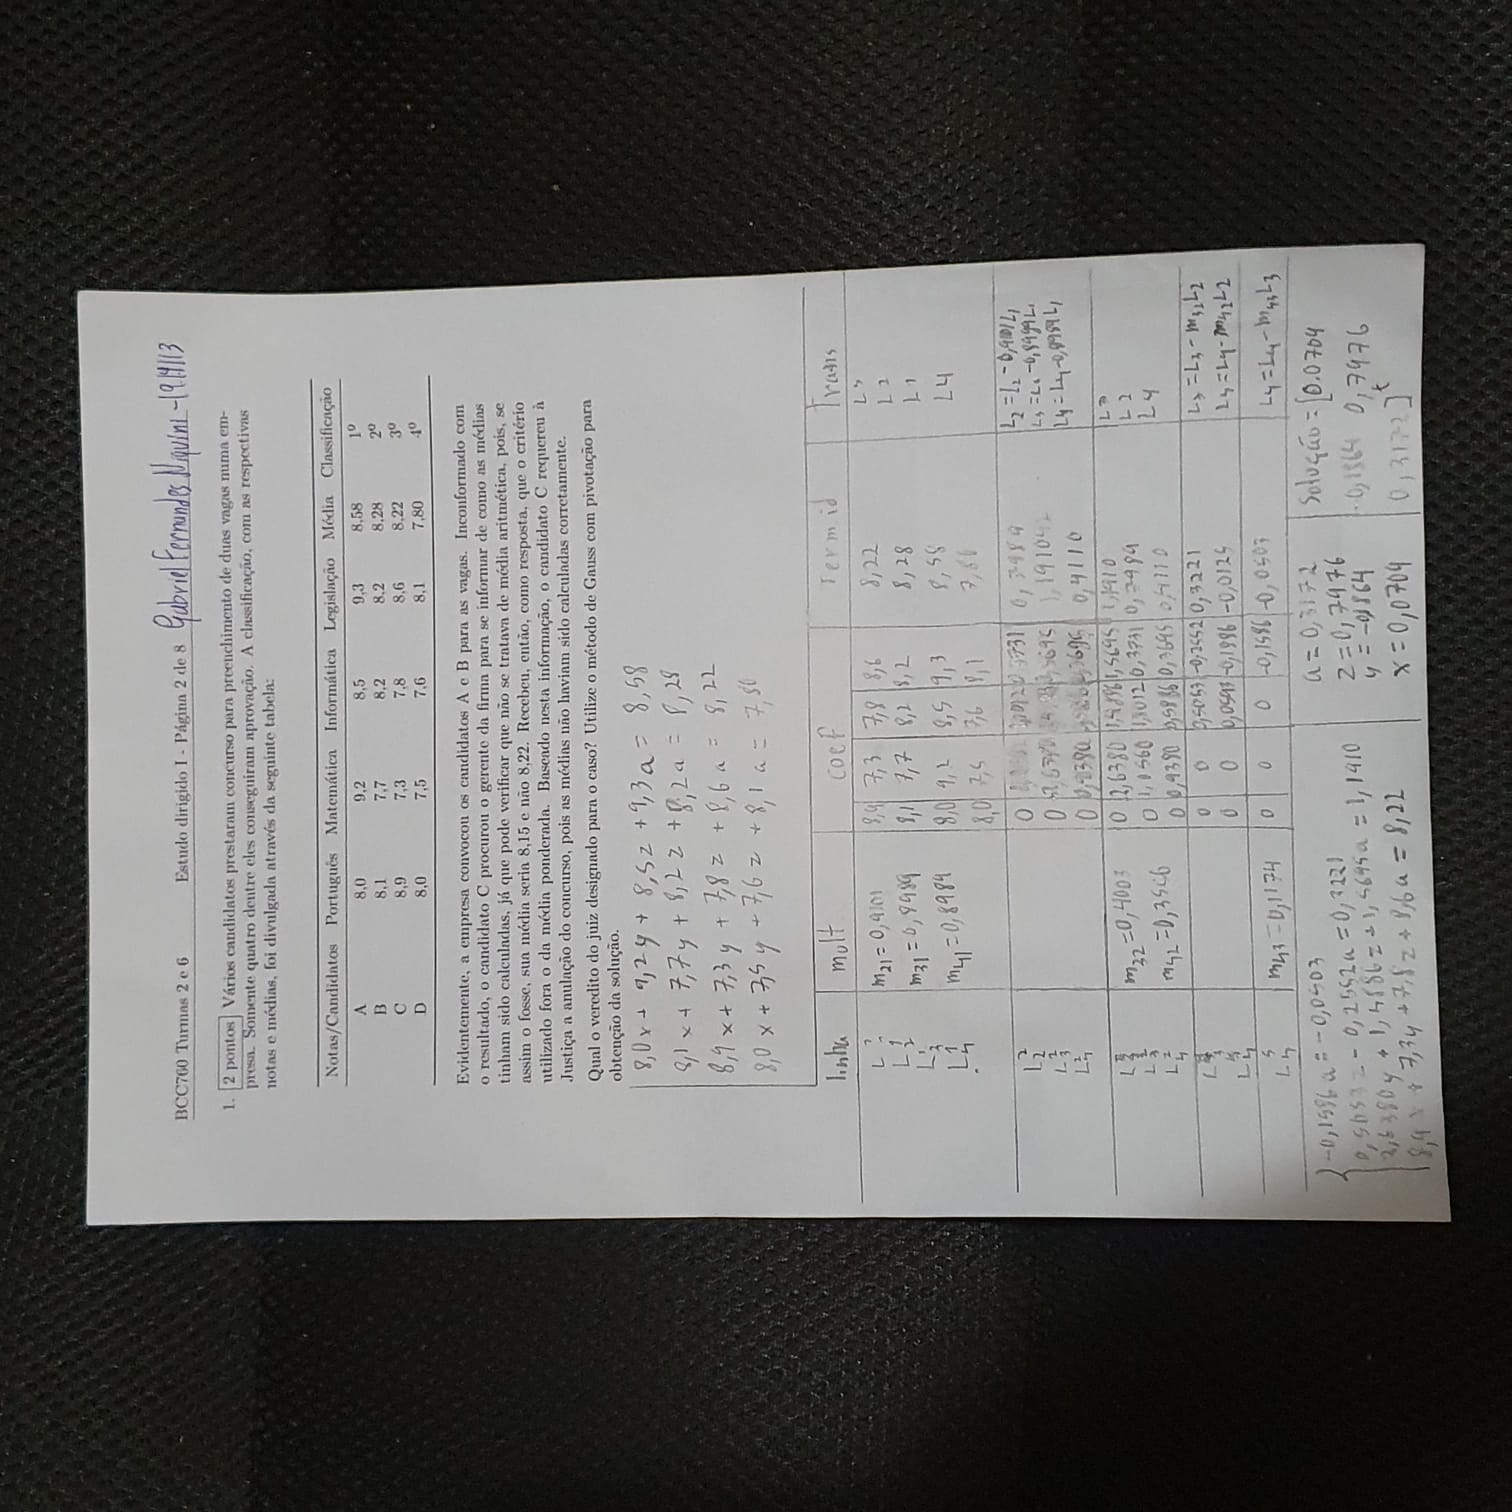 BCC760 Turmas 2 e 6 Estudo dirigido I - Página 2 de 8 Gabriel Fernandes Niquini -
1. 2 pontos Vários candidatos prestaram concurso para preenchimento de duas vagas numa em-
presa. Somente quatro dentre eles conseguiram aprovação. A classificação, com as respectivas
notas e médias, foi divulgada através da seguinte tabela:
Notas/Candidatos Português Matemática Informática Legislação Média Classificação
A 8,0 9,2 8,5 9,3 8,58 1º
B 8,1 7,7 8,2 8,2 8,28 2º
C 8,9 7,3 7,8 8,6 8,22 3º
D 8,0 7,5 7,6 8,1 7,80 4º
Evidentemente, a empresa convocou os candidatos A e B para as vagas. Inconformado com
o resultado, o candidato C procurou o gerente da firma para se informar de como as médias
tinham sido calculadas, já que pode verificar que não se tratava de média aritmética, pois, se
assim o fosse, sua média seria 8,15 e não 8,22. Recebeu, então, como resposta, que o critério
utilizado fora o da média ponderada. Baseado nesta informação, o candidato C requereu à
Justiça a anulação do concurso, pois as médias não haviam sido calculadas corretamente.
Qual o veredito do juiz designado para o caso? Utilize o método de Gauss com pivotação para
obtenção da solução.
8,0x + 9,2y + 8,5z + 9,3a = 8,58
8,1x + 7,7y + 8,2z + 8,2a = 8,28
8,9x + 7,3y + 7,8z + 8,6a = 8,22
8,0x + 7,5y + 7,6z + 8,1a = 7,80
linha mult coef Term id Trans
m21 = 0,9101 8,9 7,3 7,8 8,6 8,22
m31 = 0,8989 8,1 7,7 8,2 8,2 8,28 L2
m41 = 0,8989 8,0 9,2 8,5 9,3 8,58 L1
8,0 7,5 7,6 8,1 L4
0 0,3731 0,7989 L2 = L2 - 0,9101L1
0
0 0,4110 L4 = L4 - 0,8989L1
m32 = 0,4003 0 2,6380 1,4886 1,5695 1,1910 L3
0 1,0560 1,1012 0,3731 0,7989 L2
0 0,9380 0,5886 0,3695 0,4110 L4
0 0 0,5053 -0,2552 0,3221 L3 = L3 - m32L2
0 0 0,0593 -0,1886 -0,0125 L4 = L4 - m42L2
m43 = 0,1174 0 0 0 -0,1586 -0,0503 L4 = L4 - m43L3
-0,1586a = -0,0503 a = 0,3172 Solução = [0.0704
- 0,2552a = 0,3221 z = 0,7976 -0,1864 0,7976
2,6380y + 1,4886z + 1,5695a = 1,1910 y = -0,1864 0,3172]t
8,9x + 7,3y + 7,8z + 8,6a = 8,22 x = 0,0704